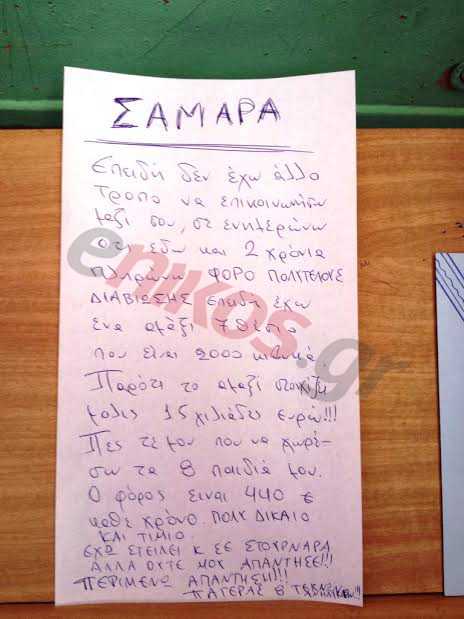 ΣΑΜΑΡΑ
Επειδή δεν έχω άλλο
τροπο να επικοινωνήσω
μαζι σου, σε ενημερώνω
οτι εδω και 2 χρόνια
πληρώνω ΦΟΡΟ ΠΟΛΥΤΕΛΟΥΣ
ΔΙΑΒΙΩΣΗΣ επειδη εχω
ενα αμαξι 7θεσιο
που είναι 2000 κυβικά.
Παρότι το αμαξι στοιχίζει
μολις 15 χιλιάδες ευρώ!!!
Πες τε μου που να χωρέ-
σω τα 8 παιδιά μου.
Ο φόρος ειναι 440 €
καθε χρόνο. ΠΟΛΥ ΔΙΚΑΙΟ
ΚΑΙ ΤΙΜΙΟ.
ΕΧΩ ΣΤΕΙΛΕΙ Κ ΣΕ ΣΤΟΥΡΝΑΡΑ
ΑΛΛΑ ΟΥΤΕ ΜΟΥ ΑΠΑΝΤΗΣΕ!!
ΠΕΡΙΜΕΝΩ ΑΠΑΝΤΗΣΗ!!!
ΠΑΤΕΡΑΣ 8
enikos.gr